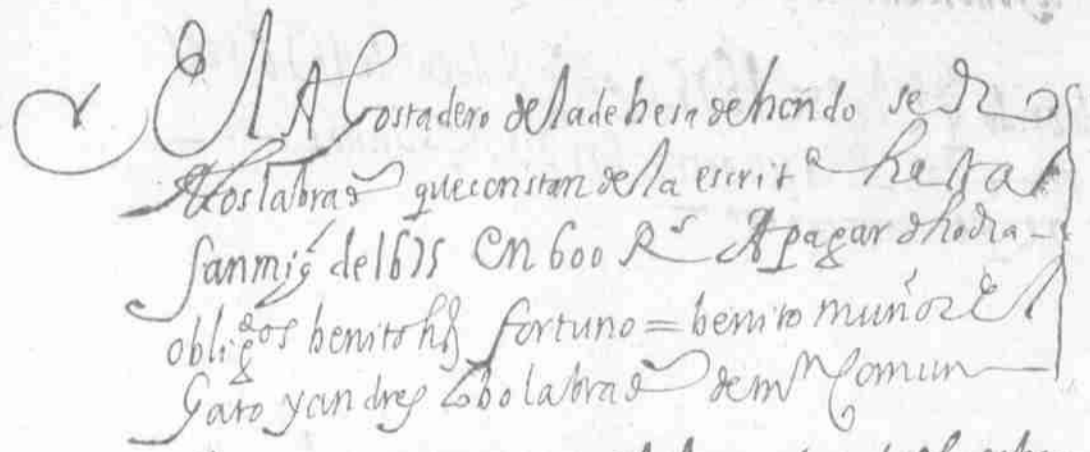 El Agostadero de la dehesa de hondo se dio
a los labrad^s que constan de la escrit^a hasta
san mig^l de 1675 En 600 R^s A pagar dho dia
oblig^os benito hr̃z fortuno = benito muñoz El
Gato y andres Lobo labrad^s de m^n Comun